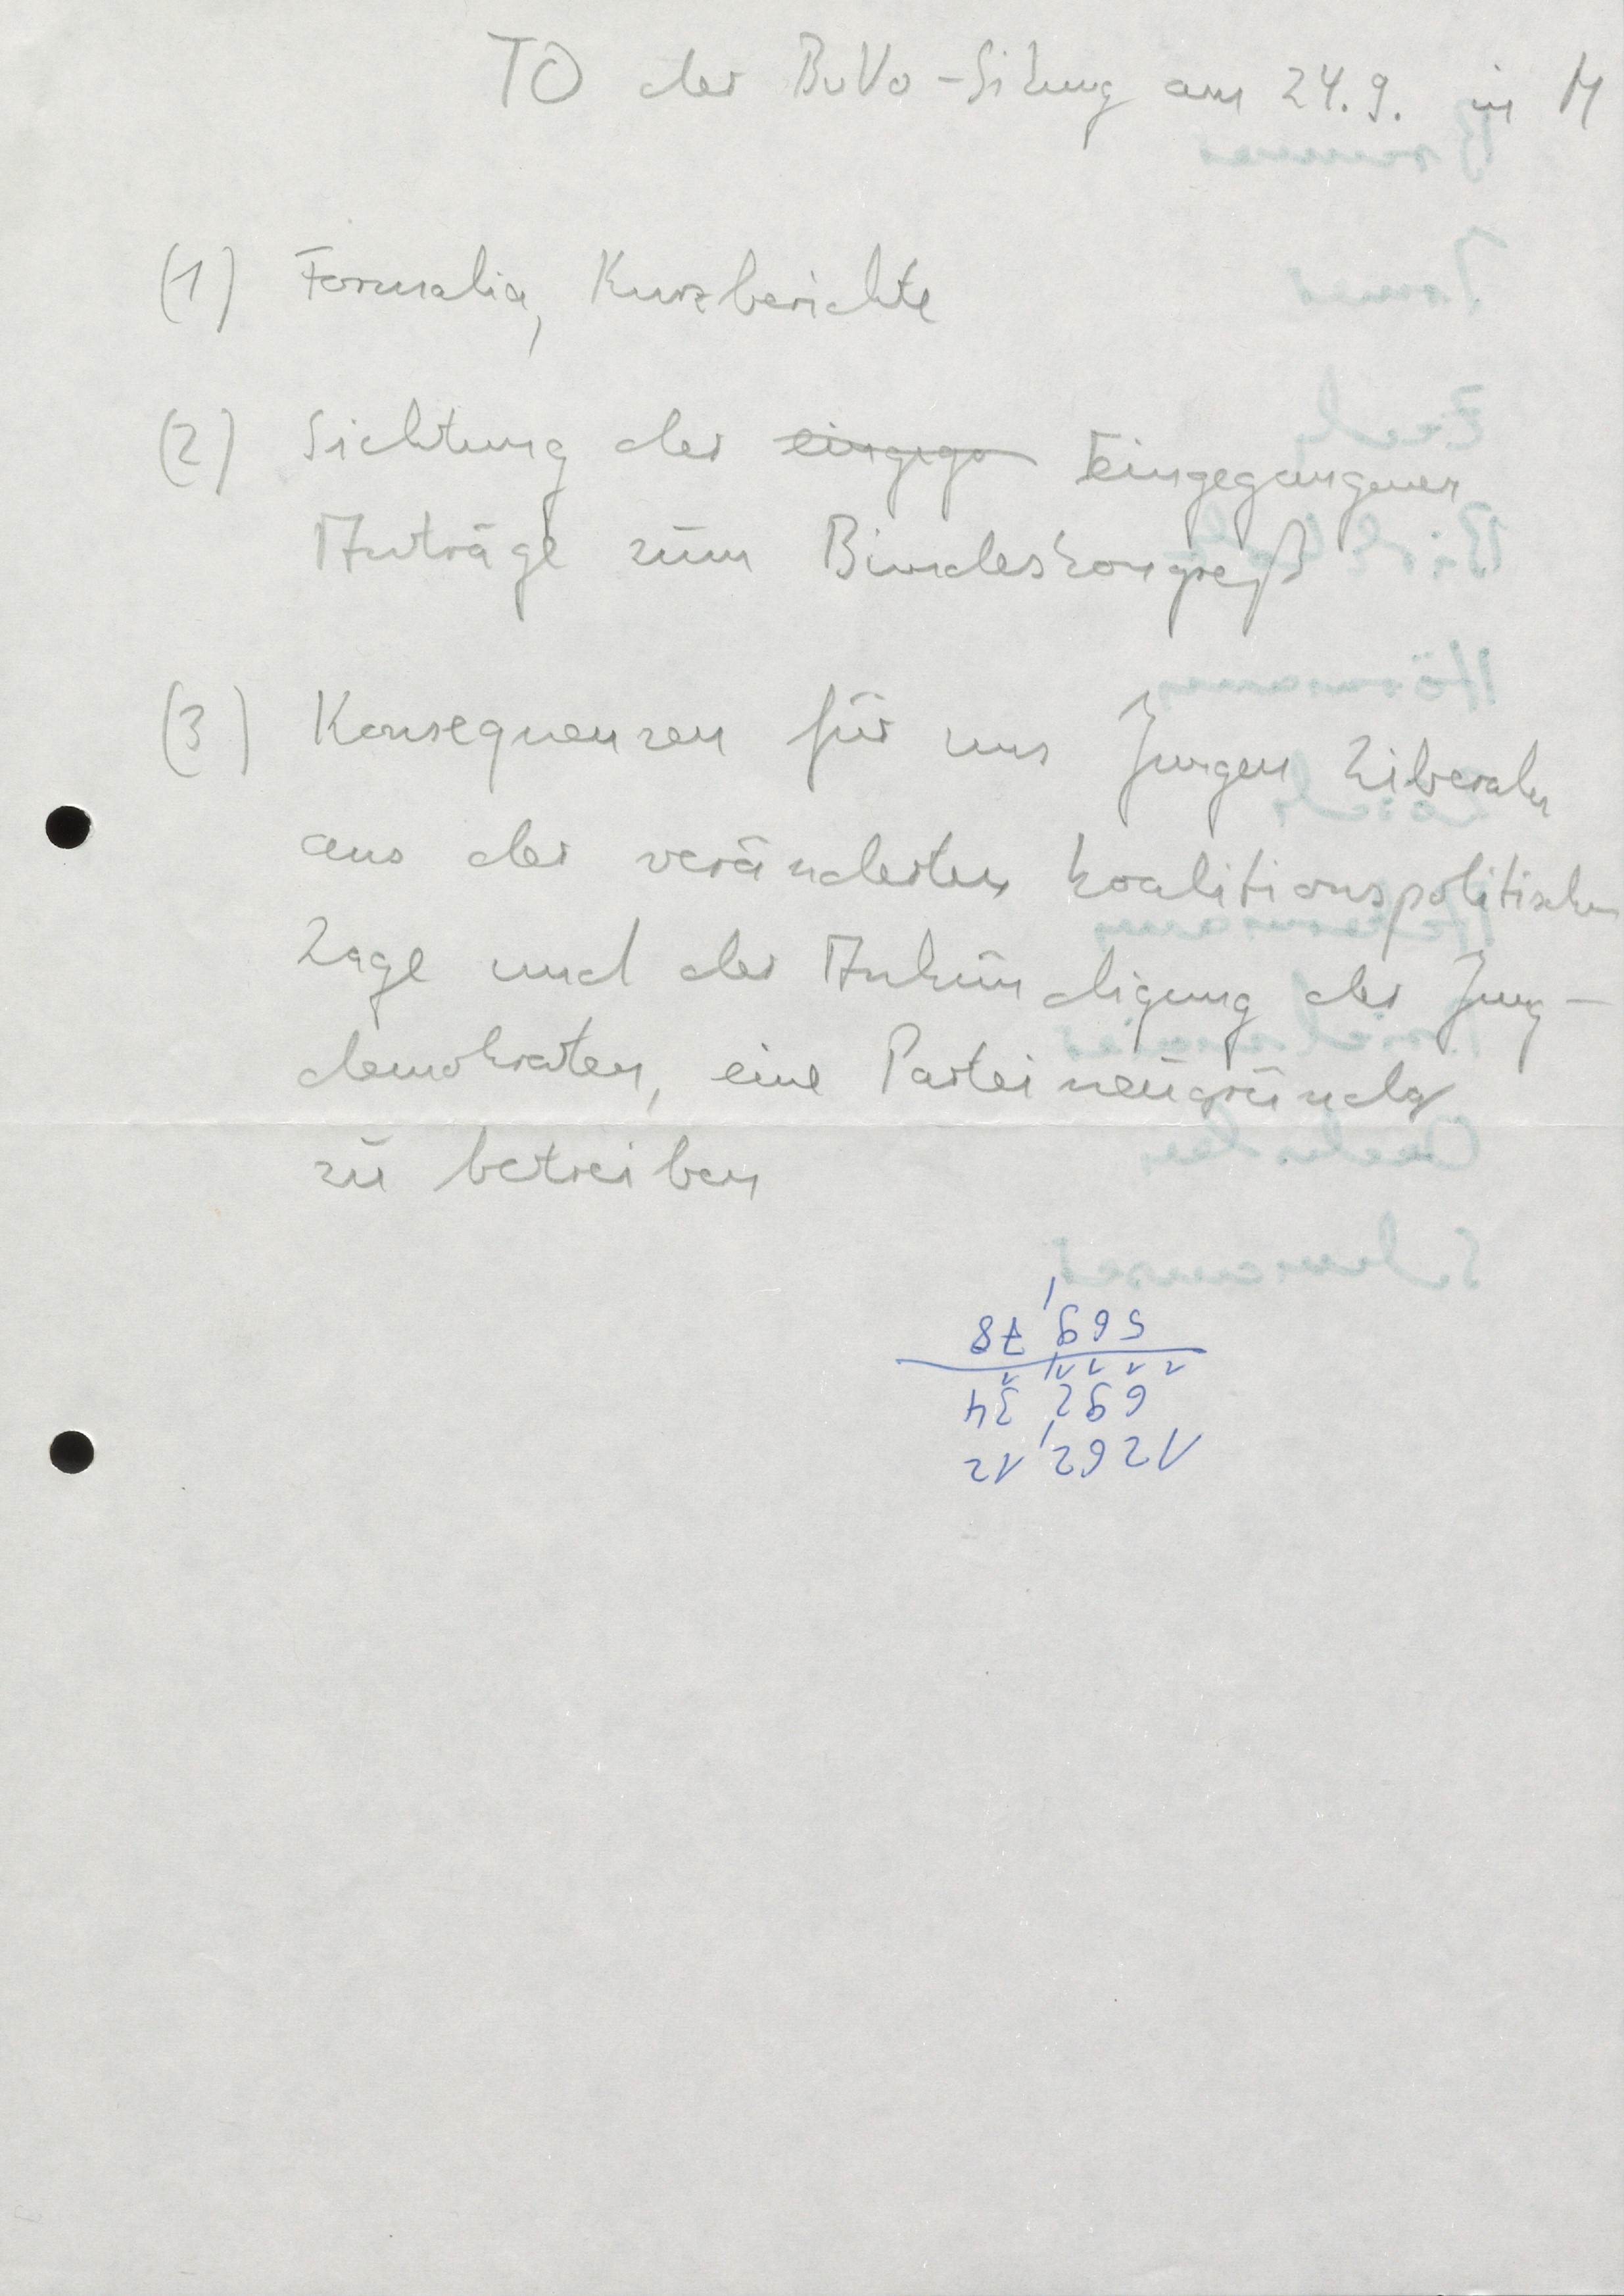 TO der BuVo-Sitzung am 24.9. in M
(1) Formalia, Kurzberichte
(2) Sichtung der eingega Eingegangenen
Anträge zum Bundeskongreß
(3) Konsequenzen für uns Junge Liberale
aus der veränderten koalitionspolitischen
Lage und der Ankündigung der Jung-
demokraten, eine Parteineugründg
zu betreiben
1262,12
692,34
569,78